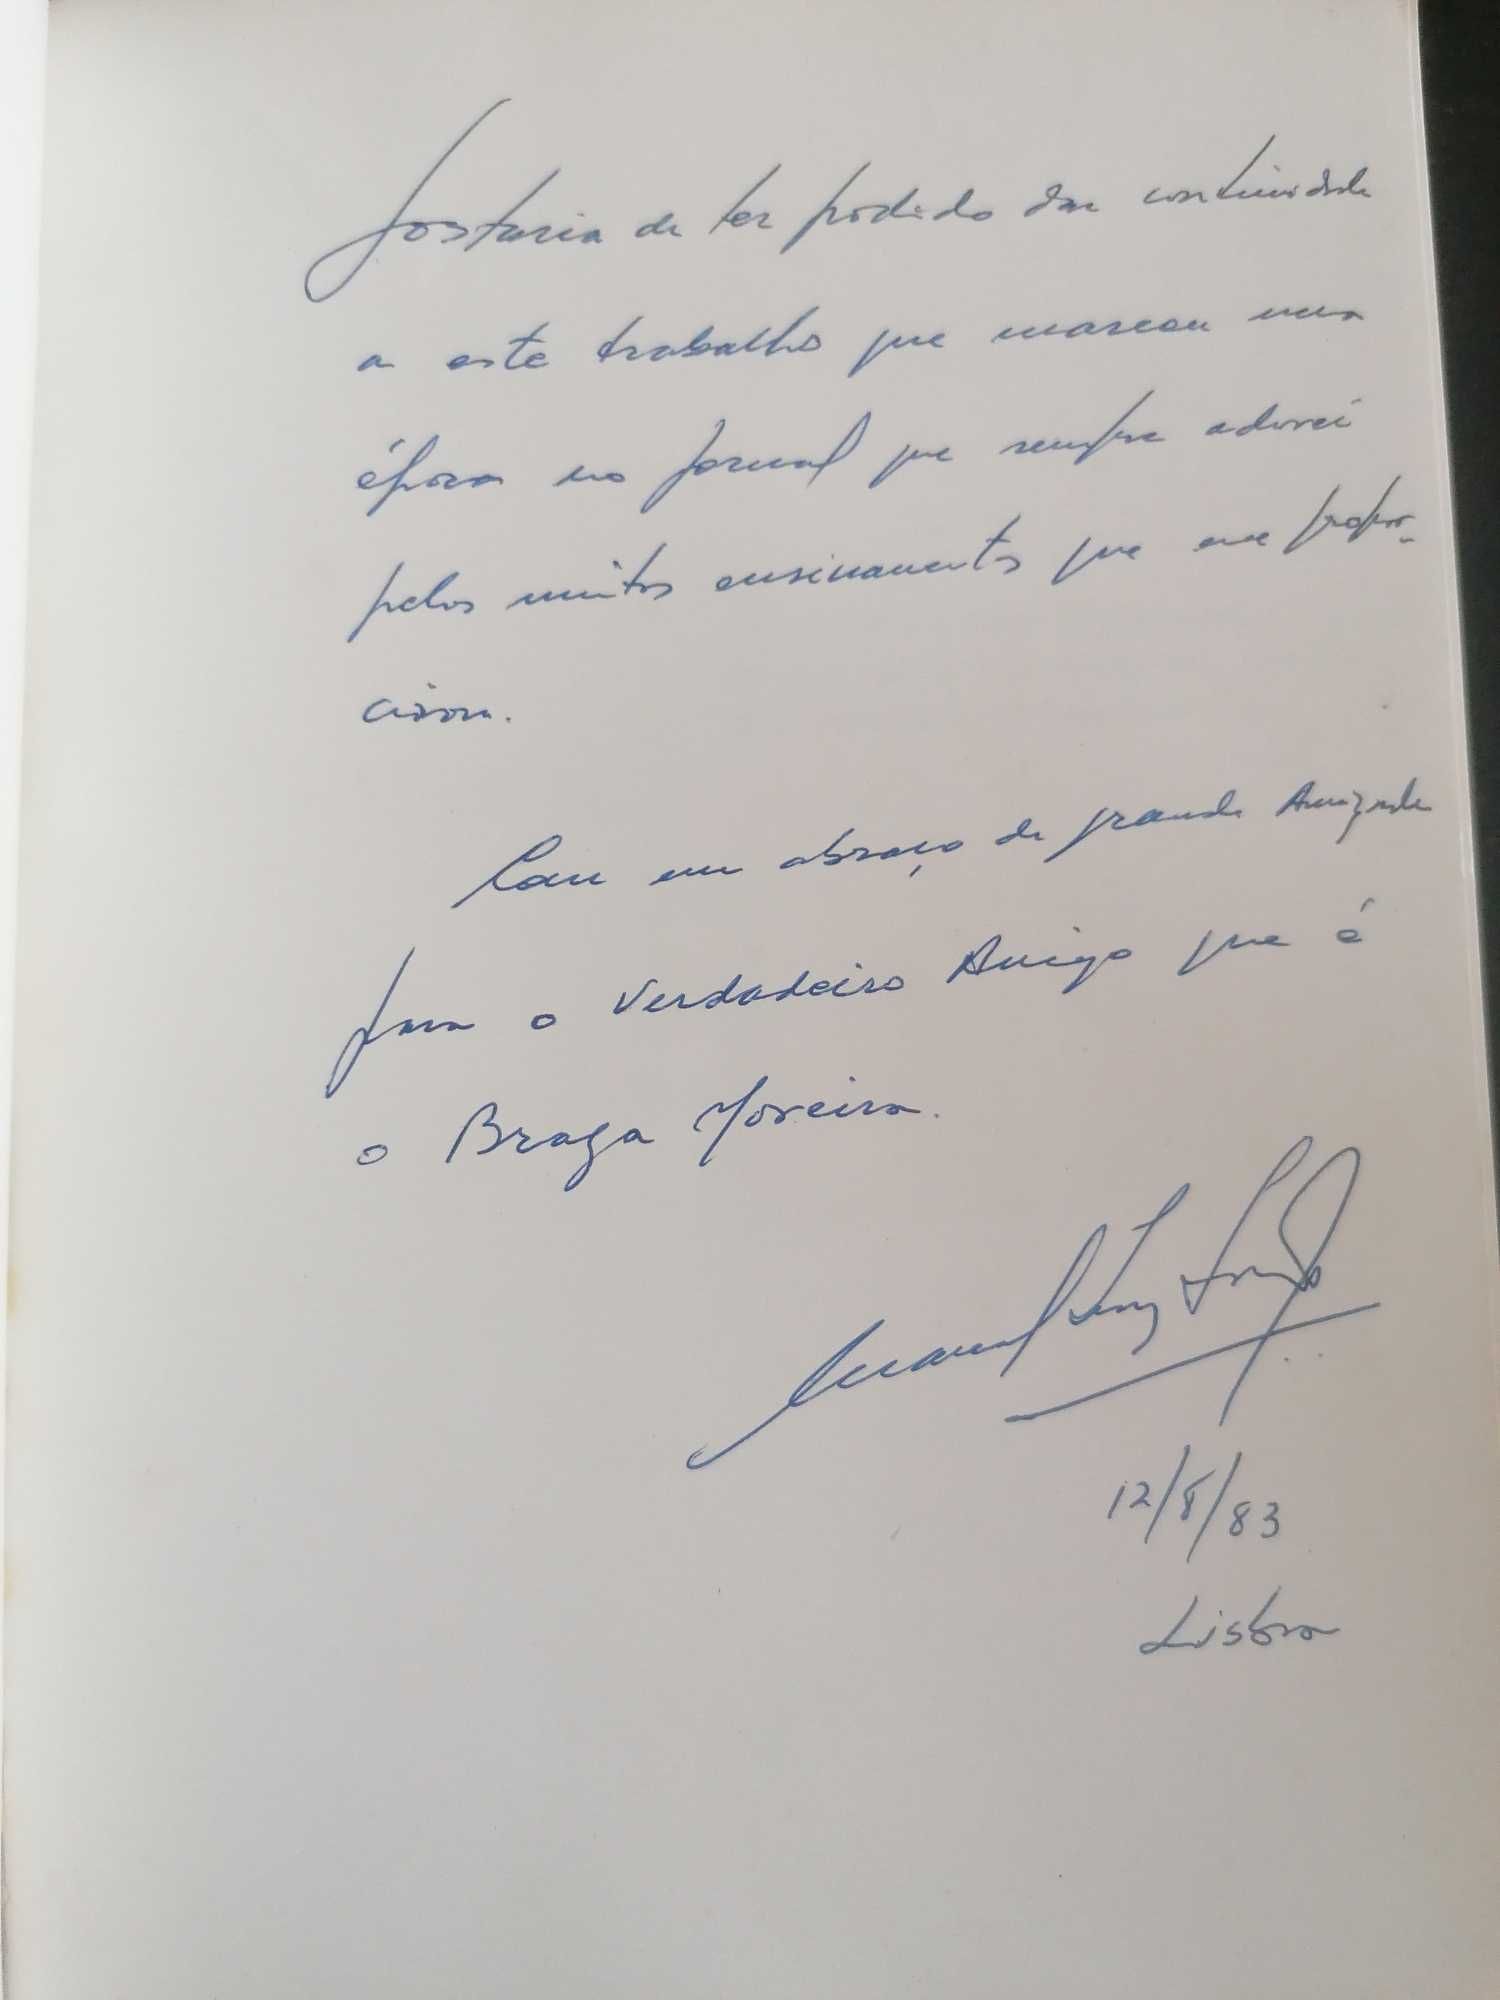 Gostaria de ter podido dar continuidade
a este trabalho que marcou uma
época no jornal que sempre adorei
pelos muitos ensinamentos que me propor-
cionou.
Com um abraço de grande Amizade
para o Verdadeiro Amigo que é
o Braga Moreira.
Manuel
12/8/83
Lisboa